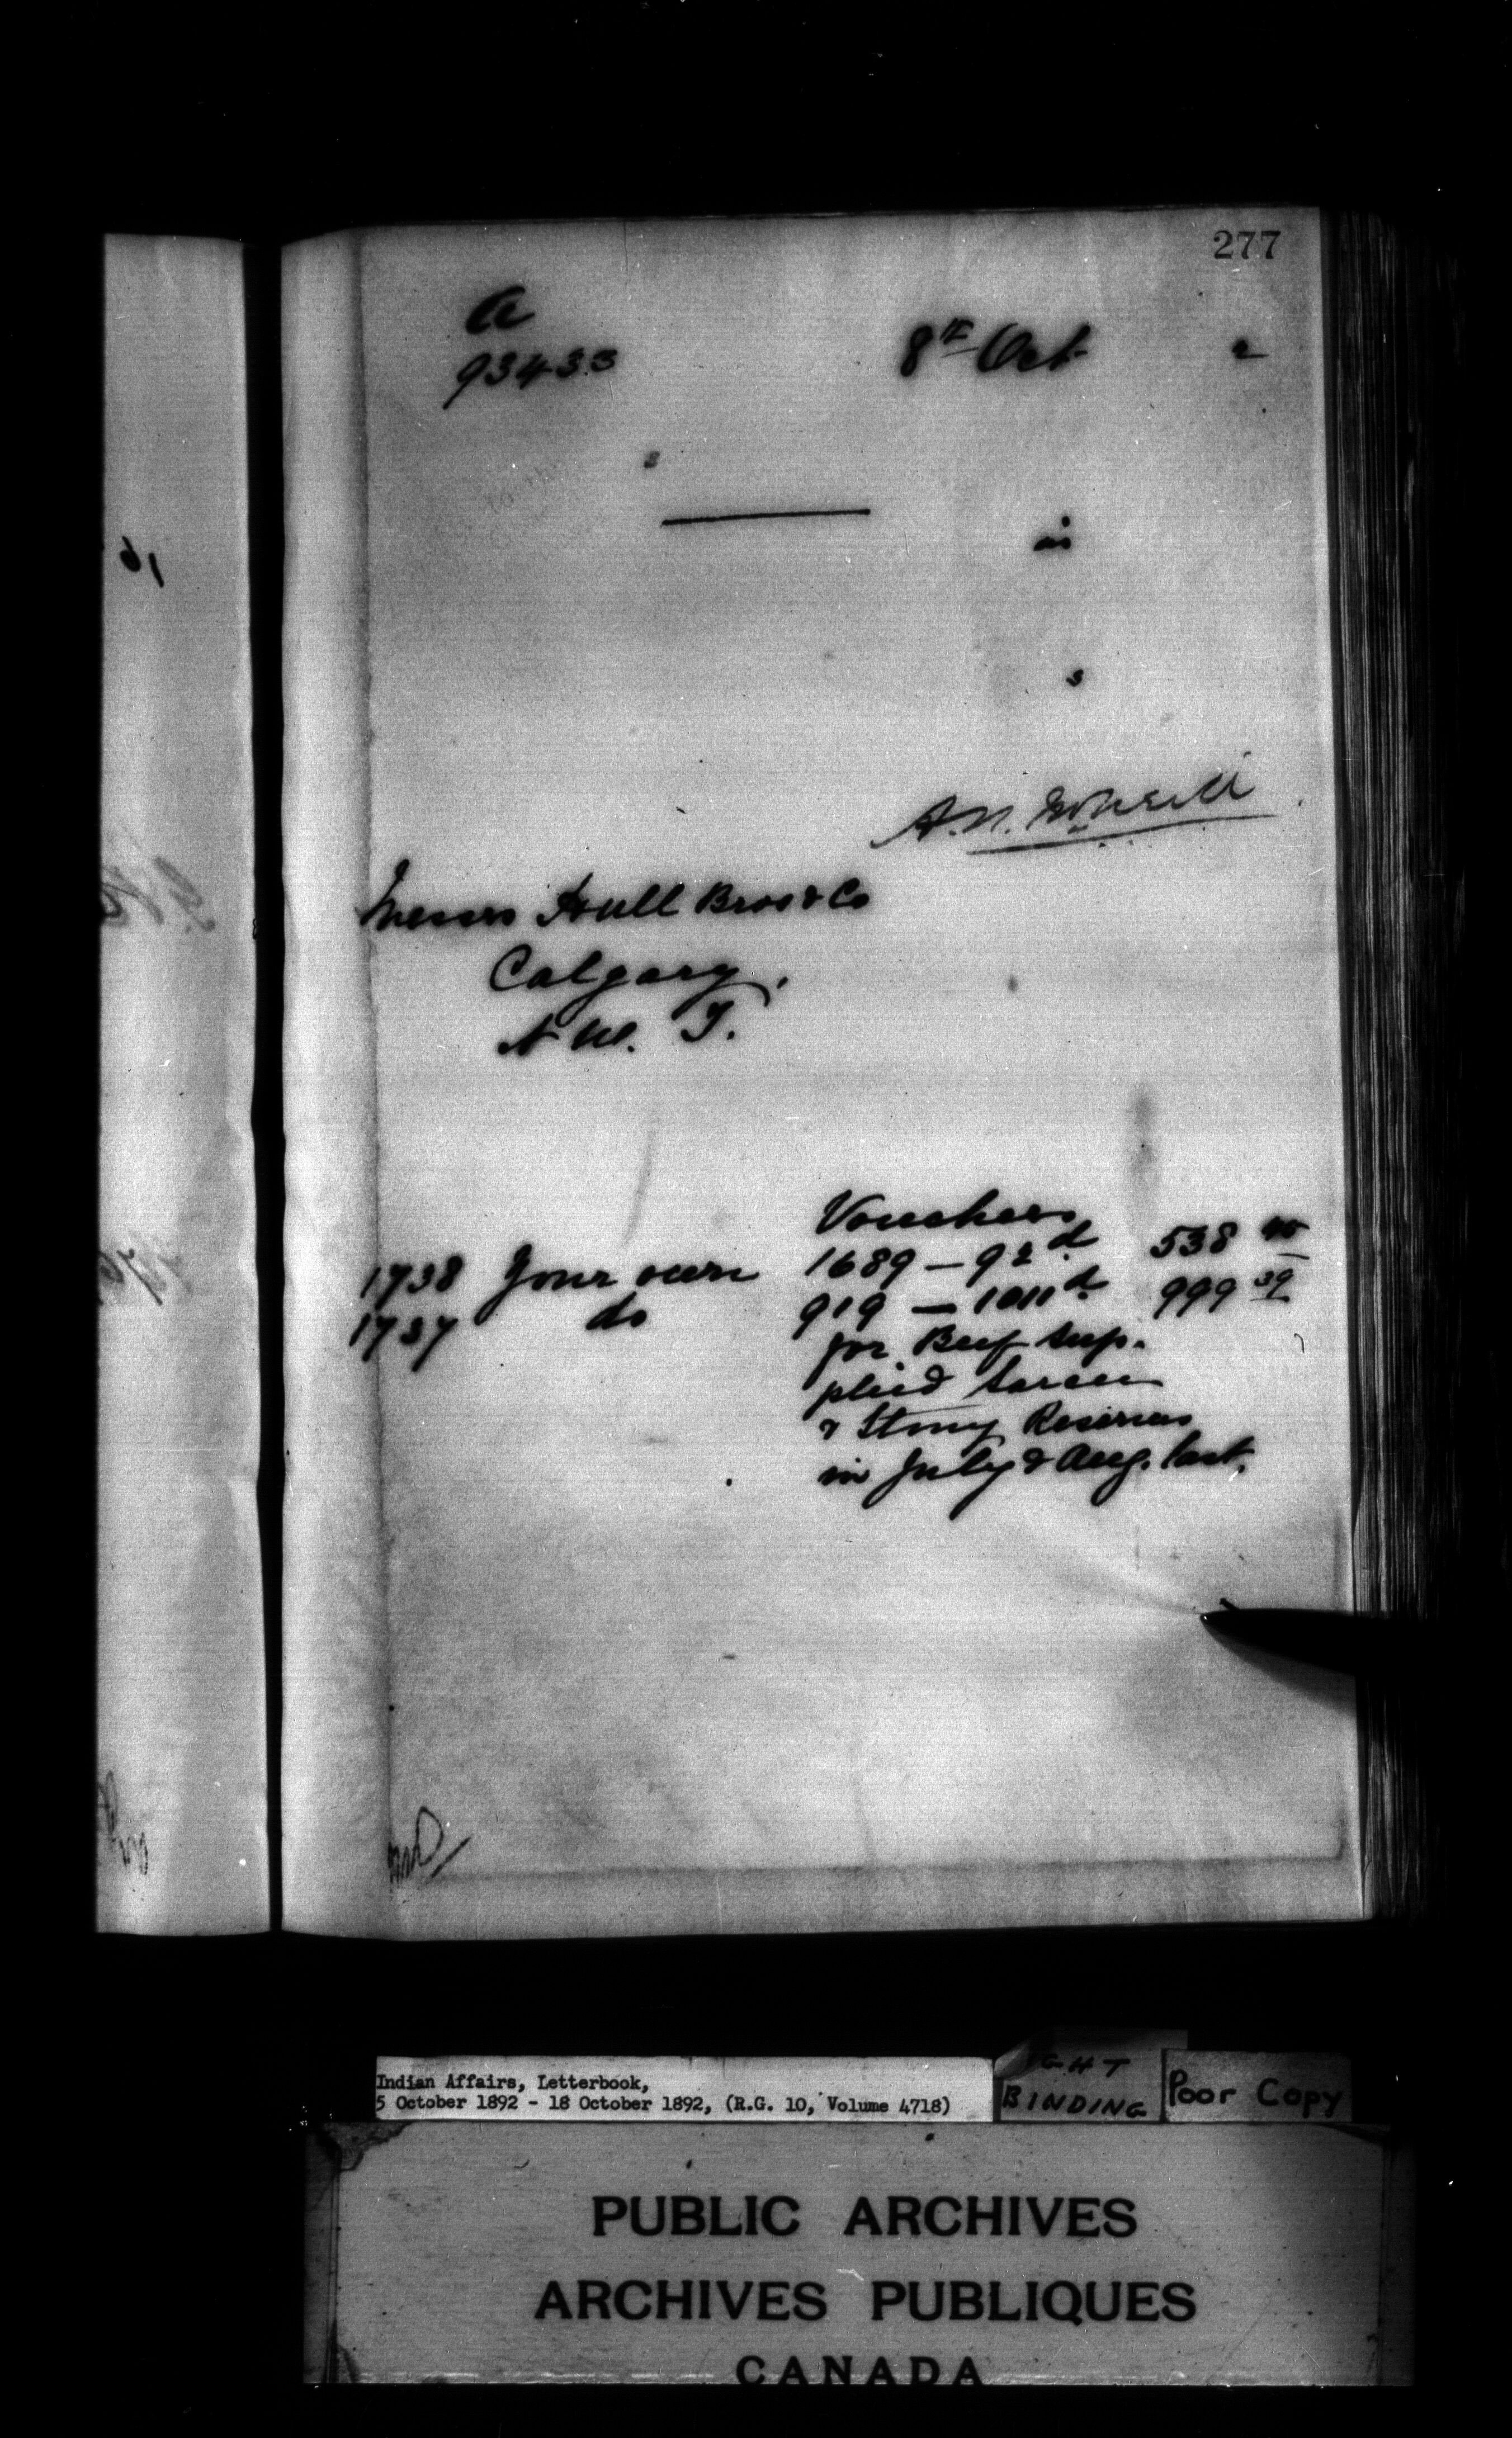 277
a
93433
8th Oct 2
s
is
s
A.N. McNeill
Messrs Hull Bros & Co
Calgary,
N W. T.
Vouchers
1738 Your own 1689 — 92d 538
1737 do 919 — 1011d 999 39
for Beef sup-
plied Sarcee
& Stony Reserves
in July & Aug. last.
Indian Affairs, Letterbook,
5 October 1892 - 18 October 1892, (R.G. 10, Volume 4718)
GHT
BINDING
Poor Copy
PUBLIC ARCHIVES
ARCHIVES PUBLIQUES
CANADA